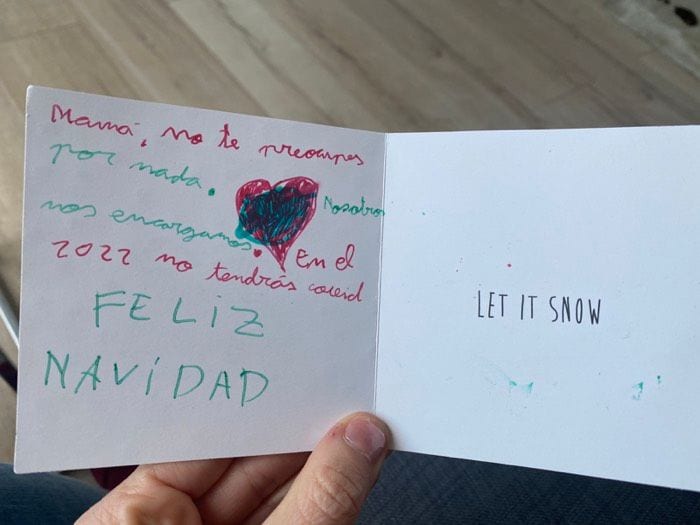 Mamá, no te preocupes
por nada. Nosotros
nos encargamos. En el
2022 no tendrás coveid
FELIZ
NAVIDAD
LET IT SNOW